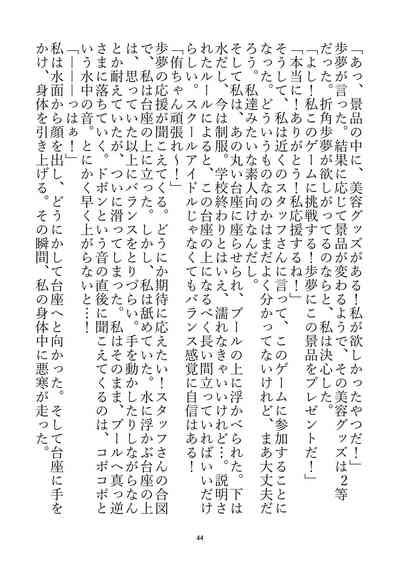 「あっ、景品の中に、美容グッズがある！私が欲しかったやつだ！」
歩夢が言った。結果に応じて景品が変わるようで、その美容グッズは2等
だった。折角歩夢が欲しがってるのならと、私は決心した。
「よし！私このゲームに挑戦する！歩夢にこの景品をプレゼントだ！」
「本当に！ありがとう！私応援するね！」
そうして、私は近くのスタッフさんに言って、このゲームに参加することに
なった。どういうものなのかはまだよく分かってないけれど、まあ大丈夫だ
ろう。私達みたいな素人向けなんだし。
そして私は、あの丸い台座に座らせられ、プールの上に浮かべられた。下は
水だし、今は制服。学校終わりとはいえ、濡れなきゃいいけれど…。説明さ
れたルールによると、この台座の上になるべく長い間立っていればいいだけ
らしい。スクールアイドルじゃなくてもバランス感覚に自信はある！
「侑ちゃん頑張れ〜！」
歩夢の応援が聞こえてくる。どうにか期待に応えたい！スタッフさんの合図
で、私は台座の上に立った。しかし、私は舐めていた。水に浮かぶ台座の上
は、思っていた以上にバランスをとりづらい。手を動かしたりしながらなん
とか耐えていたが、ついに滑ってしまった。私はそのまま、プールへ真っ逆
さまに落ちていく。ドボンという音の直後に聞こえてくるのは、コポコポと
いう水中の音。とにかく早く上がらないと…！
「―――っはぁ！」
私は水面から顔を出し、どうにかして台座へと向かった。そして台座に手を
かけ、身体を引き上げる。その瞬間、私の身体中に悪寒が走った。
44